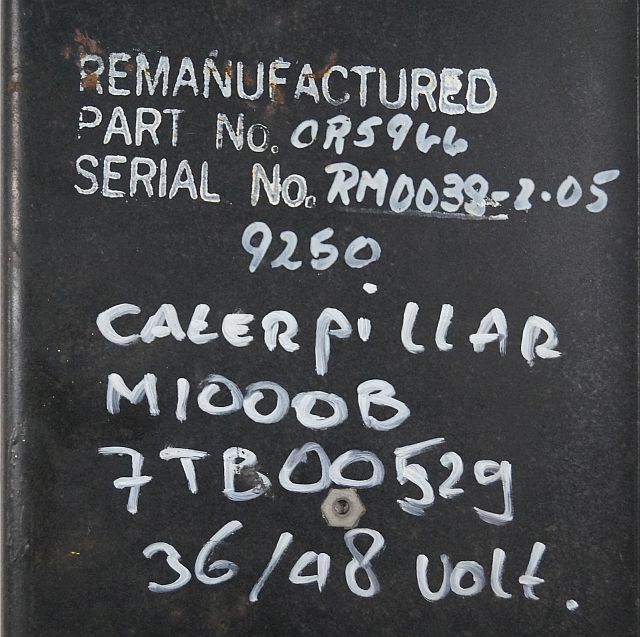 REMANUFACTURED
PART No. 0R5966
SERIAL No. RM0038-2.05
9250
CATERpillAR
M1000B
7TB00529
36/48 volt.